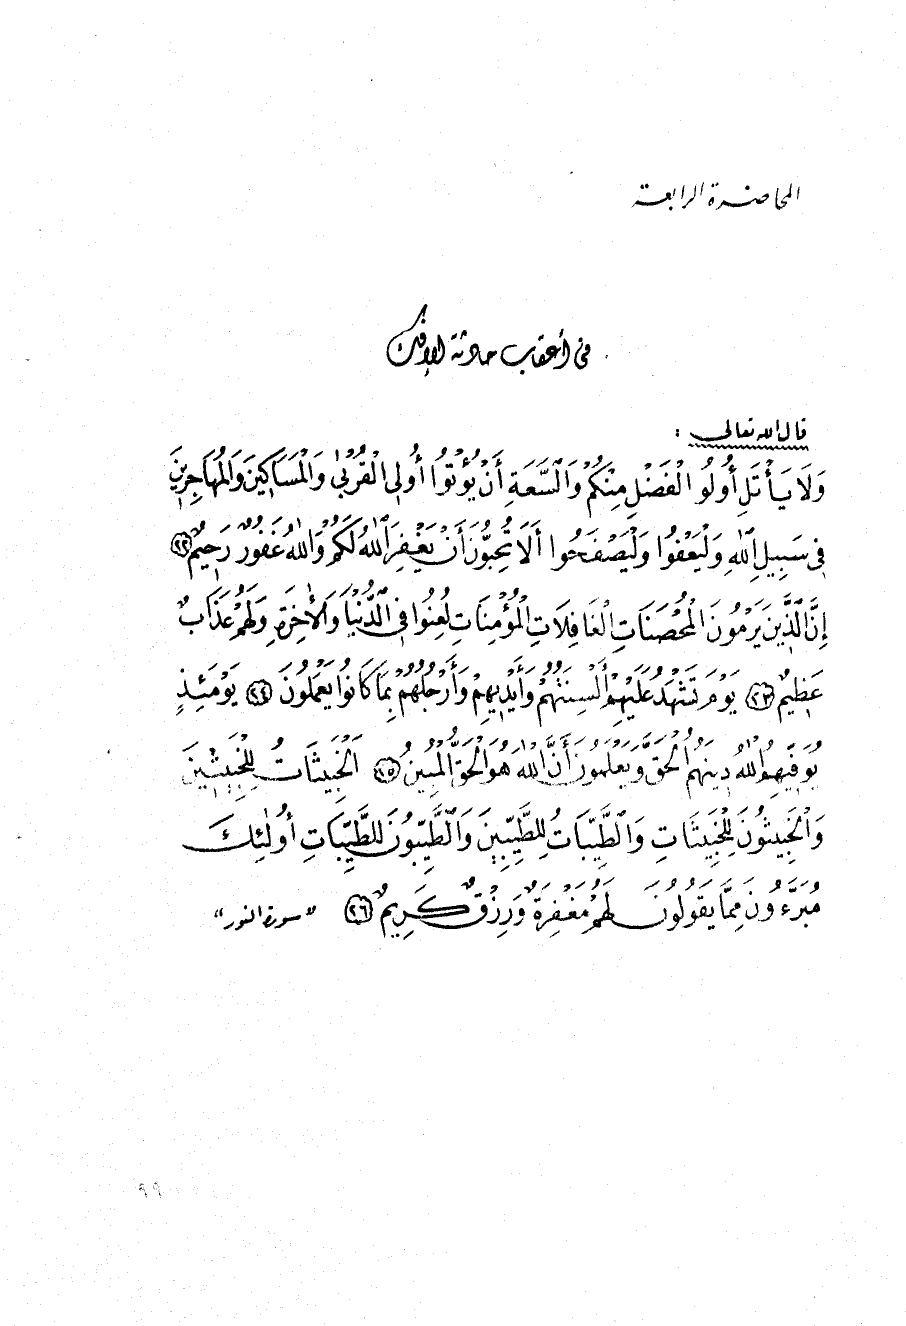 المحاضرة الرابعة
في أعقاب حادثة الإفك
قال الله تعالى :
وَلَا يَأْتَلِ أُولُو الْفَضْلِ مِنْكُمْ وَالسَّعَةِ أَنْ يُؤْتُوا أُولِي الْقُرْبَىٰ وَالْمَسَاكِينَ وَالْمُهَاجِرِينَ
فِي سَبِيلِ اللَّهِ وَلْيَعْفُوا وَلْيَصْفَحُوا أَلَا تُحِبُّونَ أَنْ يَغْفِرَ اللَّهُ لَكُمْ وَاللَّهُ غَفُورٌ رَحِيمٌ ﴿٢٢﴾
إِنَّ الَّذِينَ يَرْمُونَ الْمُحْصَنَاتِ الْغَافِلَاتِ الْمُؤْمِنَاتِ لُعِنُوا فِي الدُّنْيَا وَالْآخِرَةِ وَلَهُمْ عَذَابٌ
عَظِيمٌ ﴿٢٣﴾ يَوْمَ تَشْهَدُ عَلَيْهِمْ أَلْسِنَتُهُمْ وَأَيْدِيهِمْ وَأَرْجُلُهُمْ بِمَا كَانُوا يَعْمَلُونَ ﴿٢٤﴾ يَوْمَئِذٍ
يُوَفِّيهِمُ اللَّهُ دِينَهُمُ الْحَقَّ وَيَعْلَمُونَ أَنَّ اللَّهَ هُوَ الْحَقُّ الْمُبِينُ ﴿٢٥﴾ الْخَبِيثَاتُ لِلْخَبِيثِينَ
وَالْخَبِيثُونَ لِلْخَبِيثَاتِ وَالطَّيِّبَاتُ لِلطَّيِّبِينَ وَالطَّيِّبُونَ لِلطَّيِّبَاتِ أُولَٰئِكَ
مُبَرَّءُونَ مِمَّا يَقُولُونَ لَهُمْ مَغْفِرَةٌ وَرِزْقٌ كَرِيمٌ ﴿٢٦﴾ "سورة النور"
٩٩